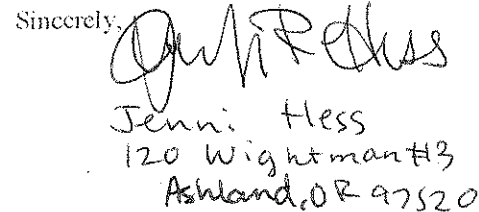 Sincerely,
Jenni Hess
120 Wightman #3
Ashland, OR 97520